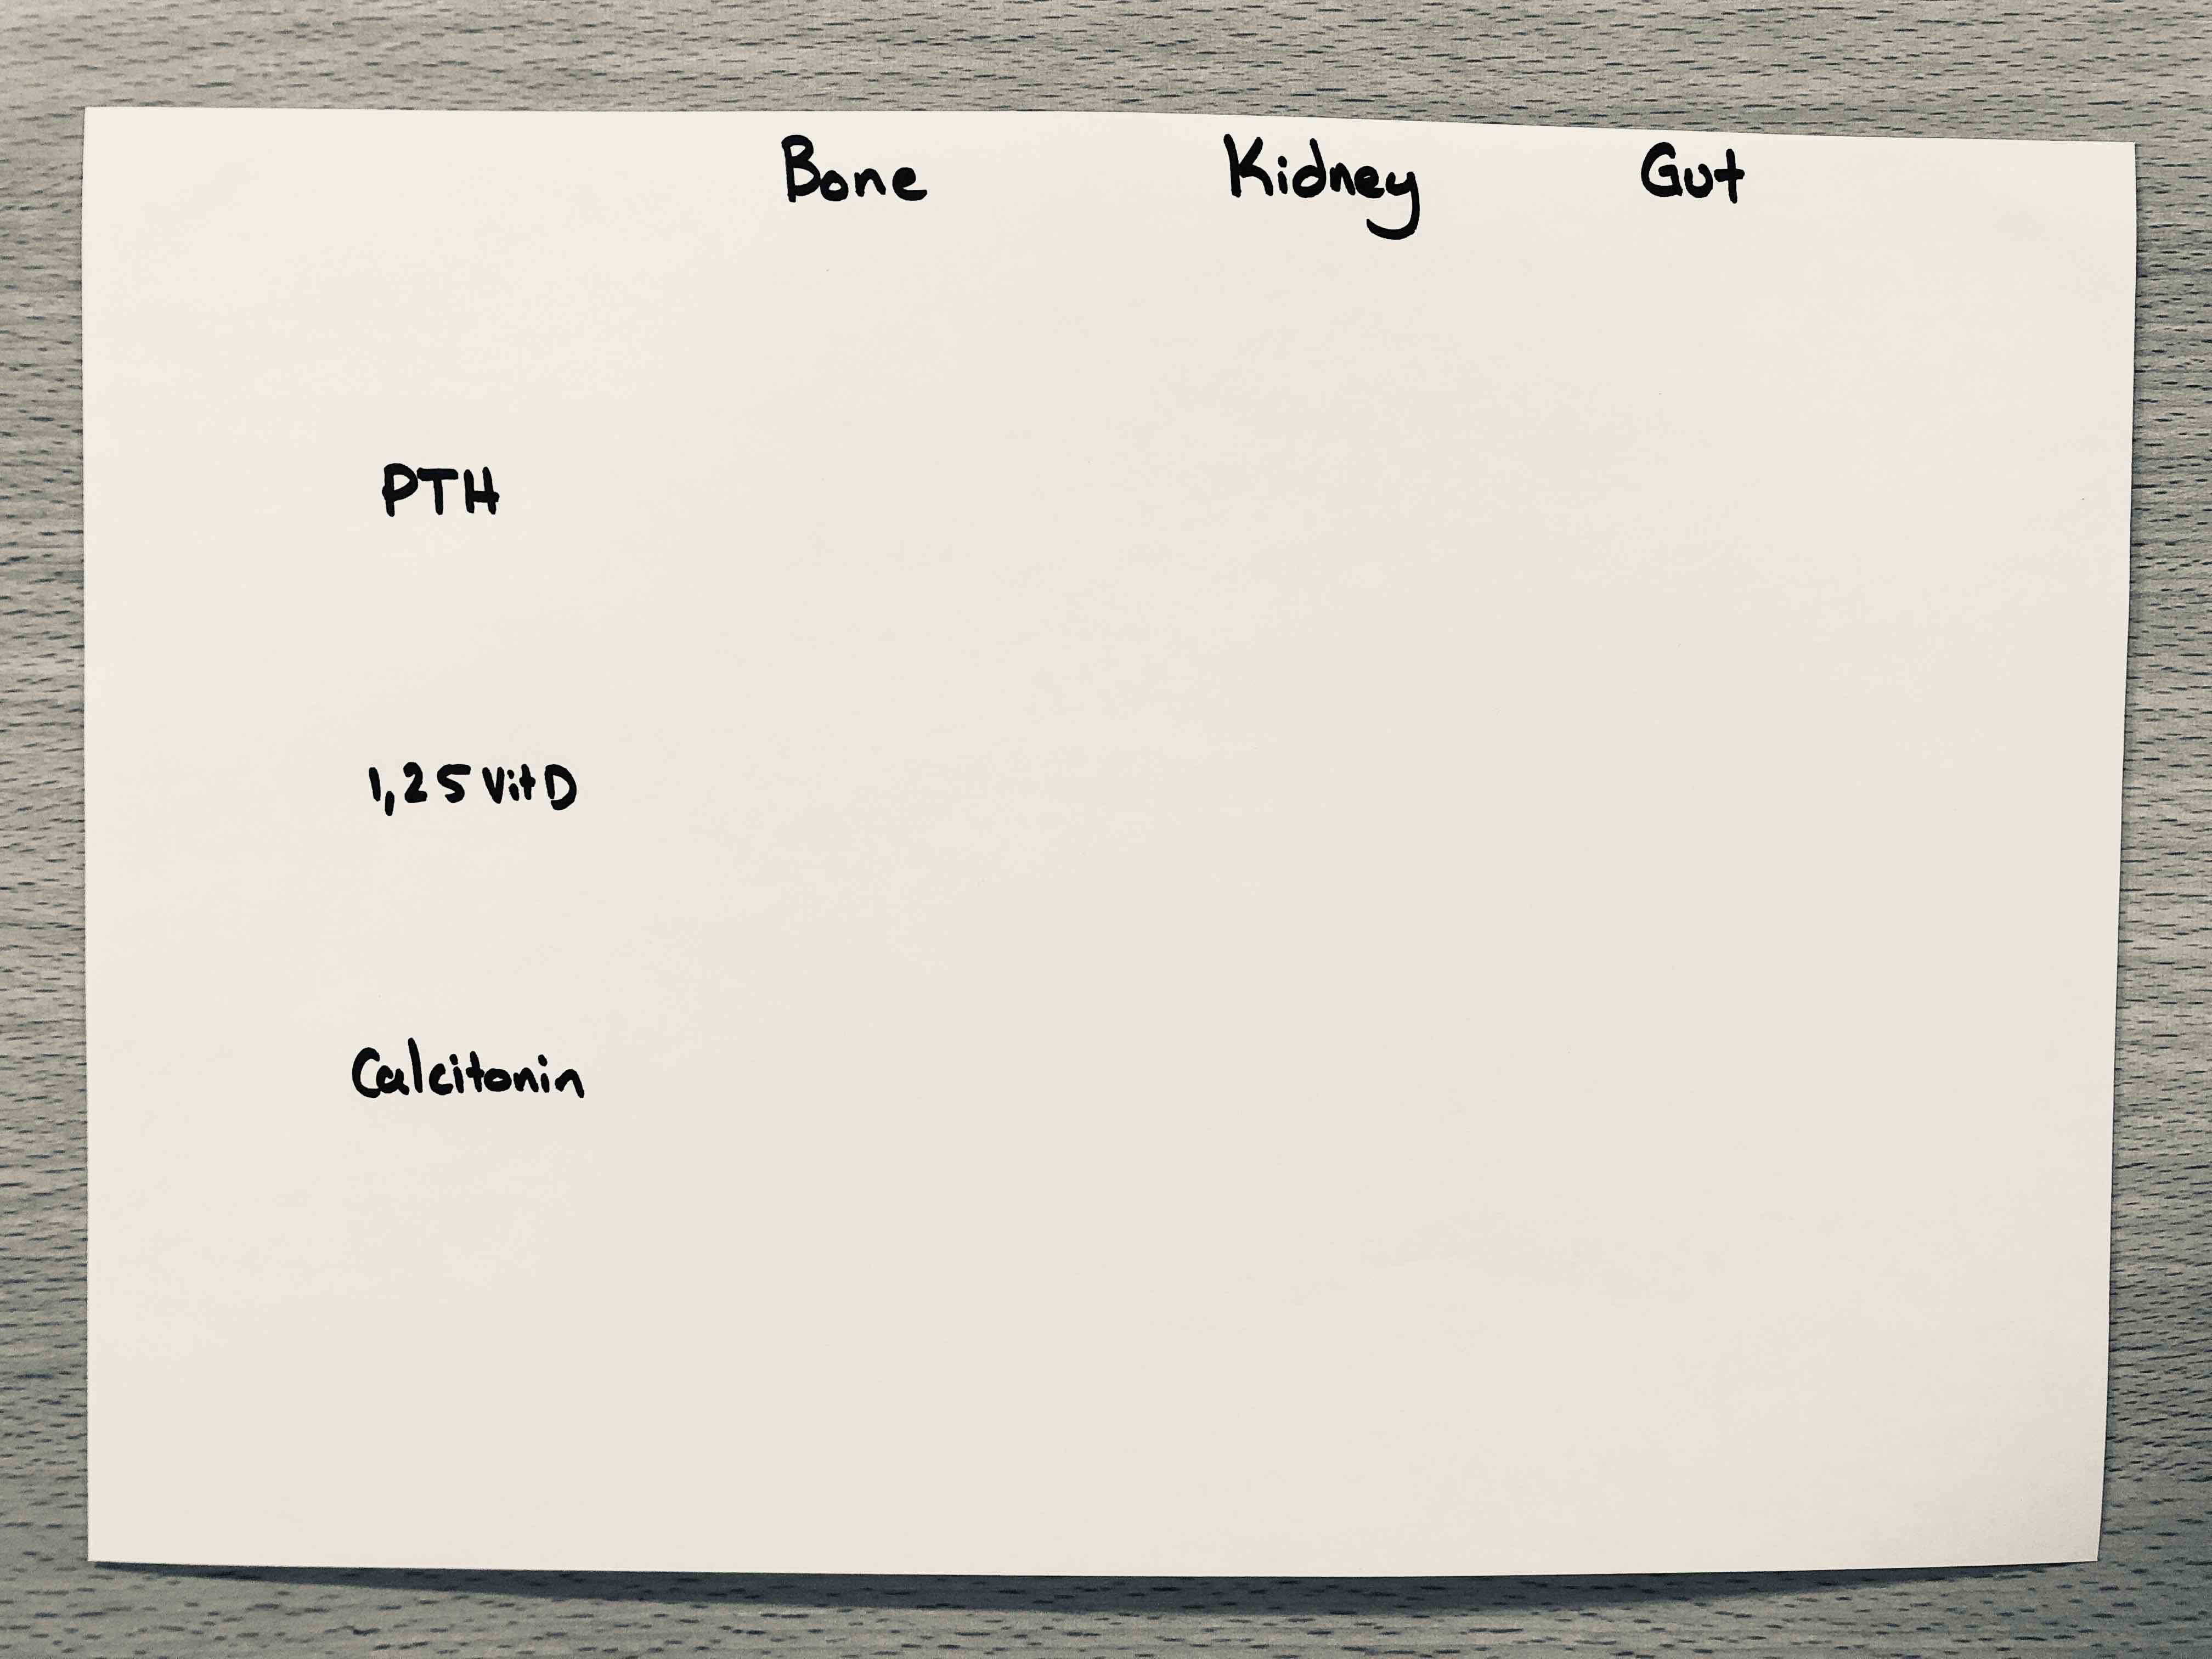 Bone Kidney Gut
PTH
1,25 Vit D
Calcitonin